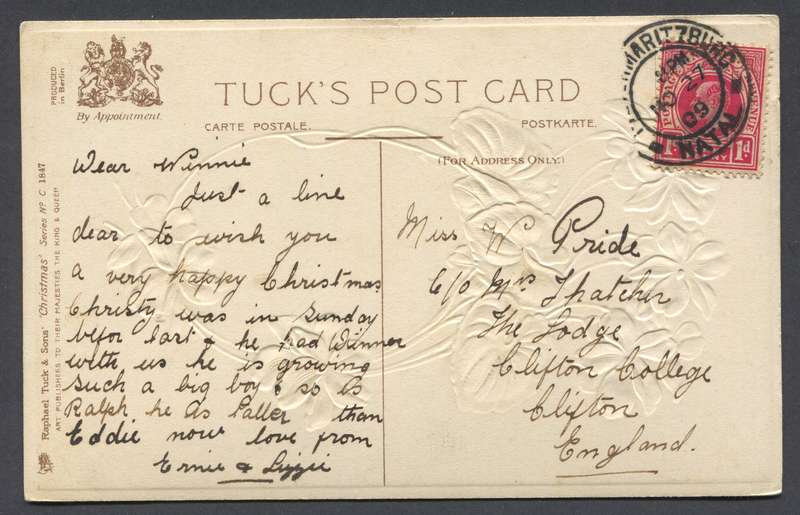 PRODUCED
in Berlin
By Appointment.
TUCK'S POST CARD
CARTE POSTALE.
POSTKARTE.
(FOR ADDRESS ONLY.)
Raphael Tuck & Sons' 'Christmas' Series Nº C 1847
ART PUBLISHERS TO THEIR MAJESTIES THE KING & QUEEN
Dear Winnie
Just a line
dear to wish you
a very happy Christmas
Christy was in Sunday
befor last & he had Dinner
with us he is growing
such a big boy & so is
Ralph he is taller than
Eddie now love from
Ernie & Lizzie
Miss W Pride
C/o Mrs Thatcher
The Lodge
Clifton College
Clifton
England.
MARITZBURG
27
09
NATAL
1d